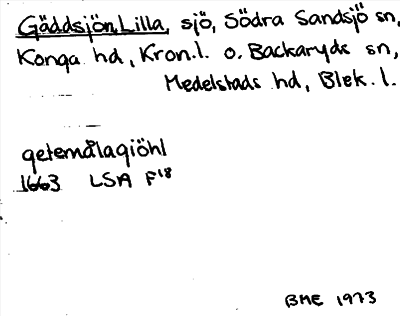 Gäddsjön, Lilla, sjö, Södra Sandsjö sn,
Konga hd, Kron.l. o. Backaryds sn,
Medelstads hd, Blek. l.
getemålagiöhl
1663 LSA F18
BME 1973